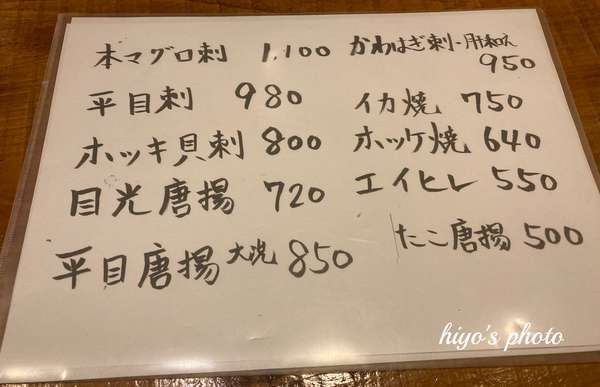 本マグロ刺 1,100
平目刺 980
ホッキ貝刺 800
目光唐揚 720
平目唐揚 大洗 850
かわはぎ刺・肝和え
950
イカ焼 750
ホッケ焼 640
エイヒレ 550
たこ唐揚 500
hiyo's photo